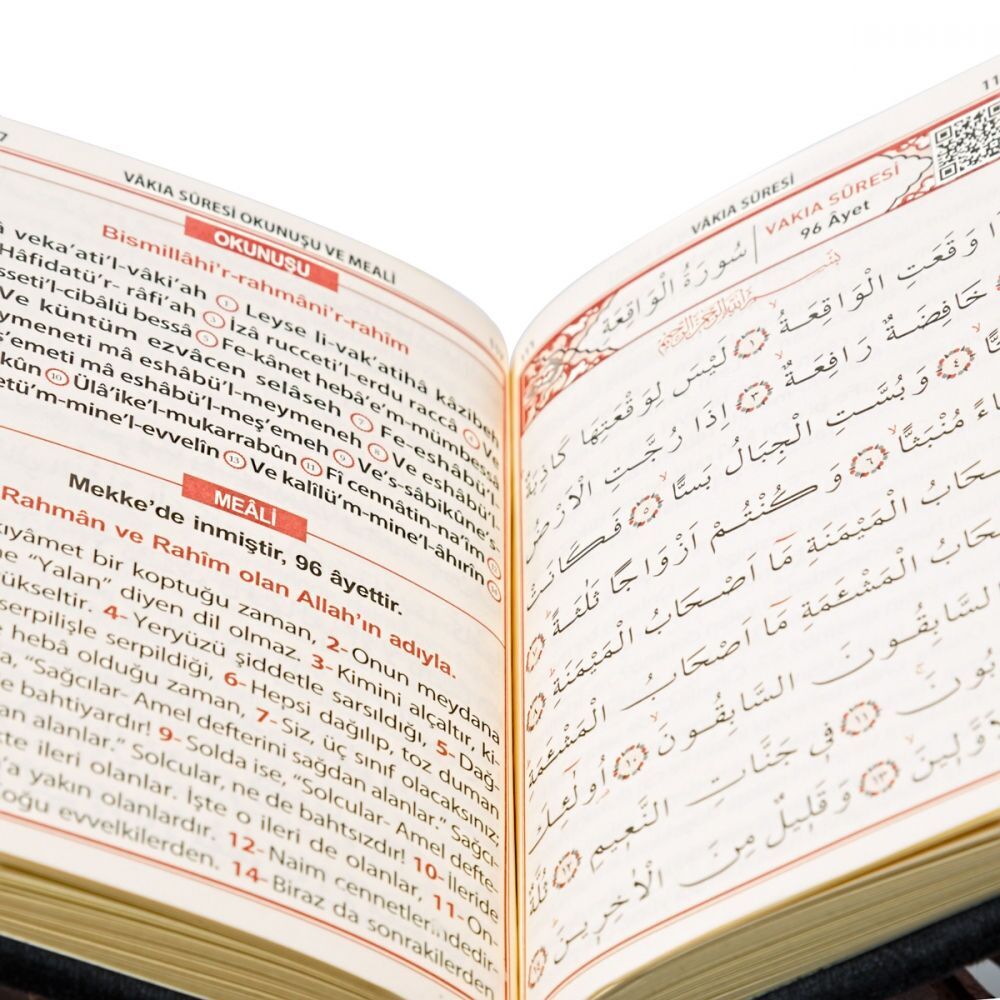 7
VÂKIA SÛRESİ OKUNUŞU VE MEALİ
OKUNUŞU
Bismillâhi'r-rahmâni'r-rahîm
veka'ati'l-vâki'ah ① Leyse li-vak'atihâ kâzibeh
Hâfidatü'r- râfi'ah ③ İzâ rucceti'l-erdu raccâ ④ Ve
sseti'l-cibâlü bessâ ⑤ Fe-kânet hebâ'e'm-mümbessâ
Ve küntüm ezvâcen selâseh ⑦ Fe-eshâbü'l-
ymeneti mâ eshâbü'l-meymeneh ⑧ Ve eshâbü'l-
ş'emeti mâ eshâbü'l-meş'emeh ⑨ Ve's-sâbikûne's-
kûn ⑩ Ülâ'ike'l-mukarrabûn ⑪ Fî cennâtin-na'îm ⑫
etü'm-mine'l-evvelîn ⑬ Ve kalîlü'm-mine'l-âhırîn ⑭
MEÂLİ
Mekke'de inmiştir, 96 âyettir.
Rahmân ve Rahîm olan Allah'ın adıyla.
kıyâmet bir koptuğu zaman, 2- Onun meydana
ne "Yalan" diyen dil olmaz. 3- Kimini alçaltır, ki-
yükseltir. 4- Yeryüzü şiddetle sarsıldığı, 5- Dağ-
serpilişle serpildiği, 6- Hepsi dağılıp, toz duman
heba olduğu zaman, 7- Siz, üç sınıf olacaksınız;
a, "Sağcılar- Amel defterini sağdan alanlar." Sağcı-
e bahtiyardır! 9- Solda ise, "Solcular- Amel defte-
an alanlar." Solcular, ne de bahtsızdır! 10- İleride
te ileri olanlar. İşte o ileri de olanlar, 11- On-
'a yakın olanlardır. 12- Naim cennetlerindedir-
Çoğu evvelkilerden. 14- Biraz da sonrakilerden
11
VÂKIA SÛRESİ
سُورَةُ الْوَاقِعَةِ
VAKIA SÛRESİ
96 Âyet
بِسْمِ اللّٰهِ الرَّحْمٰنِ الرَّحِيمِ
وَقَعَتِ الْوَاقِعَةُ ١ لَيْسَ لِوَقْعَتِهَا كَاذِبَةٌ
خَافِضَةٌ رَافِعَةٌ ٣ اِذَا رُجَّتِ الْاَرْضُ
٤ وَبُسَّتِ الْجِبَالُ بَسًّا ٥ فَكَانَتْ
مُنْبَثًّا ٦ وَكُنْتُمْ اَزْوَاجًا ثَلٰثَةً ٧
الْمَيْمَنَةِ مَٓا اَصْحَابُ الْمَيْمَنَةِ ٨
الْمَشْـَٔمَةِ مَٓا اَصْحَابُ الْمَشْـَٔمَةِ
السَّابِقُونَ السَّابِقُونَ ١٠ اُولٰٓئِكَ
١١ فِي جَنَّاتِ النَّعِيمِ ١٢ ثُلَّةٌ
١٣ وَقَلِيلٌ مِنَ الْاٰخِرِينَ ١٤